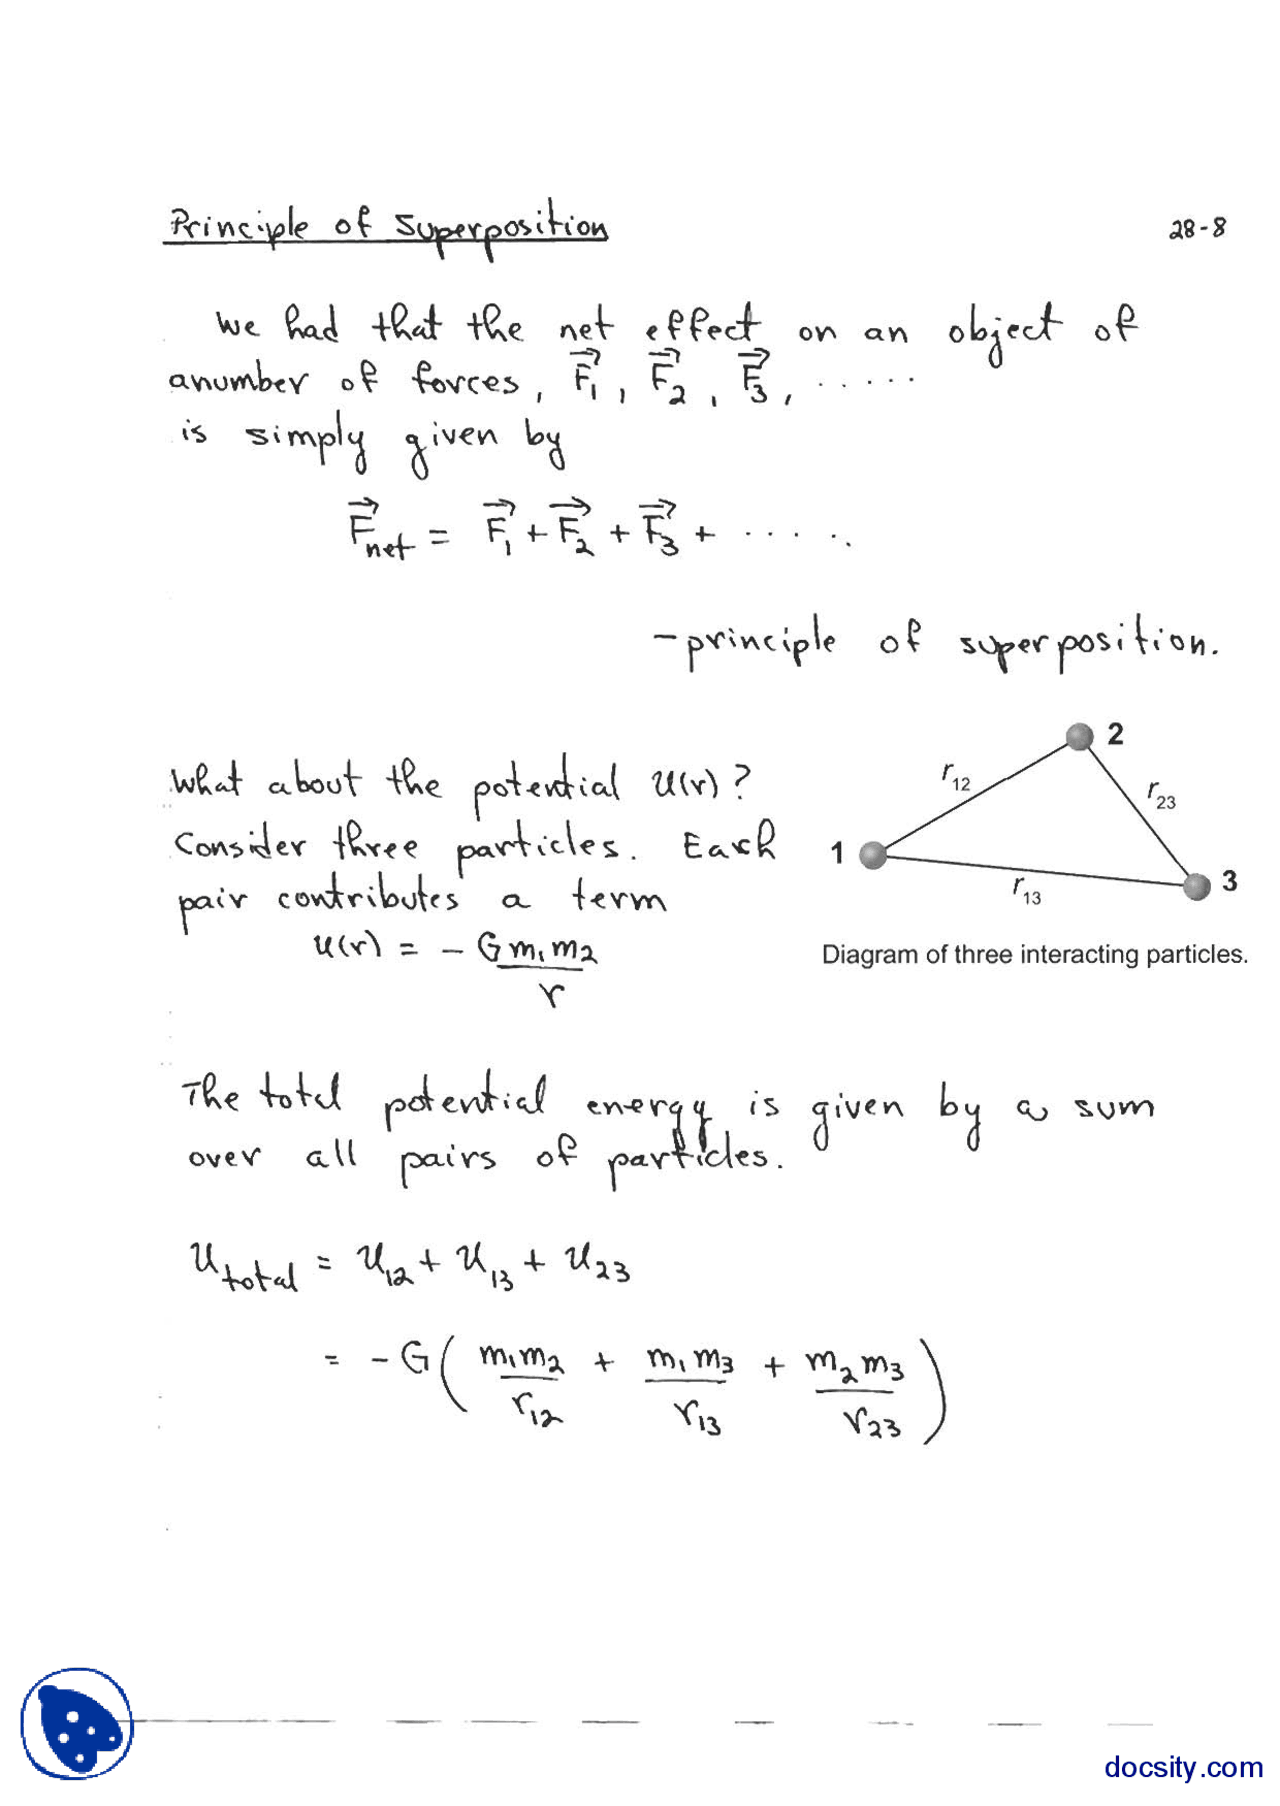 Principle of Superposition
28-8
We had that the net effect on an object of
anumber of forces, F⃗₁, F⃗₂, F⃗₃, .....
is simply given by
F⃗net = F⃗₁ + F⃗₂ + F⃗₃ + .....
- principle of superposition.
What about the potential U(r)?
Consider three particles. Each
pair contributes a term
U(r) = - Gm₁m₂/r
1
2
3
r₁₂
r₂₃
r₁₃
Diagram of three interacting particles.
The total potential energy is given by a sum
over all pairs of particles.
Utotal = U₁₂ + U₁₃ + U₂₃
= - G( m₁m₂/r₁₂ + m₁m₃/r₁₃ + m₂m₃/r₂₃ )
docsity.com